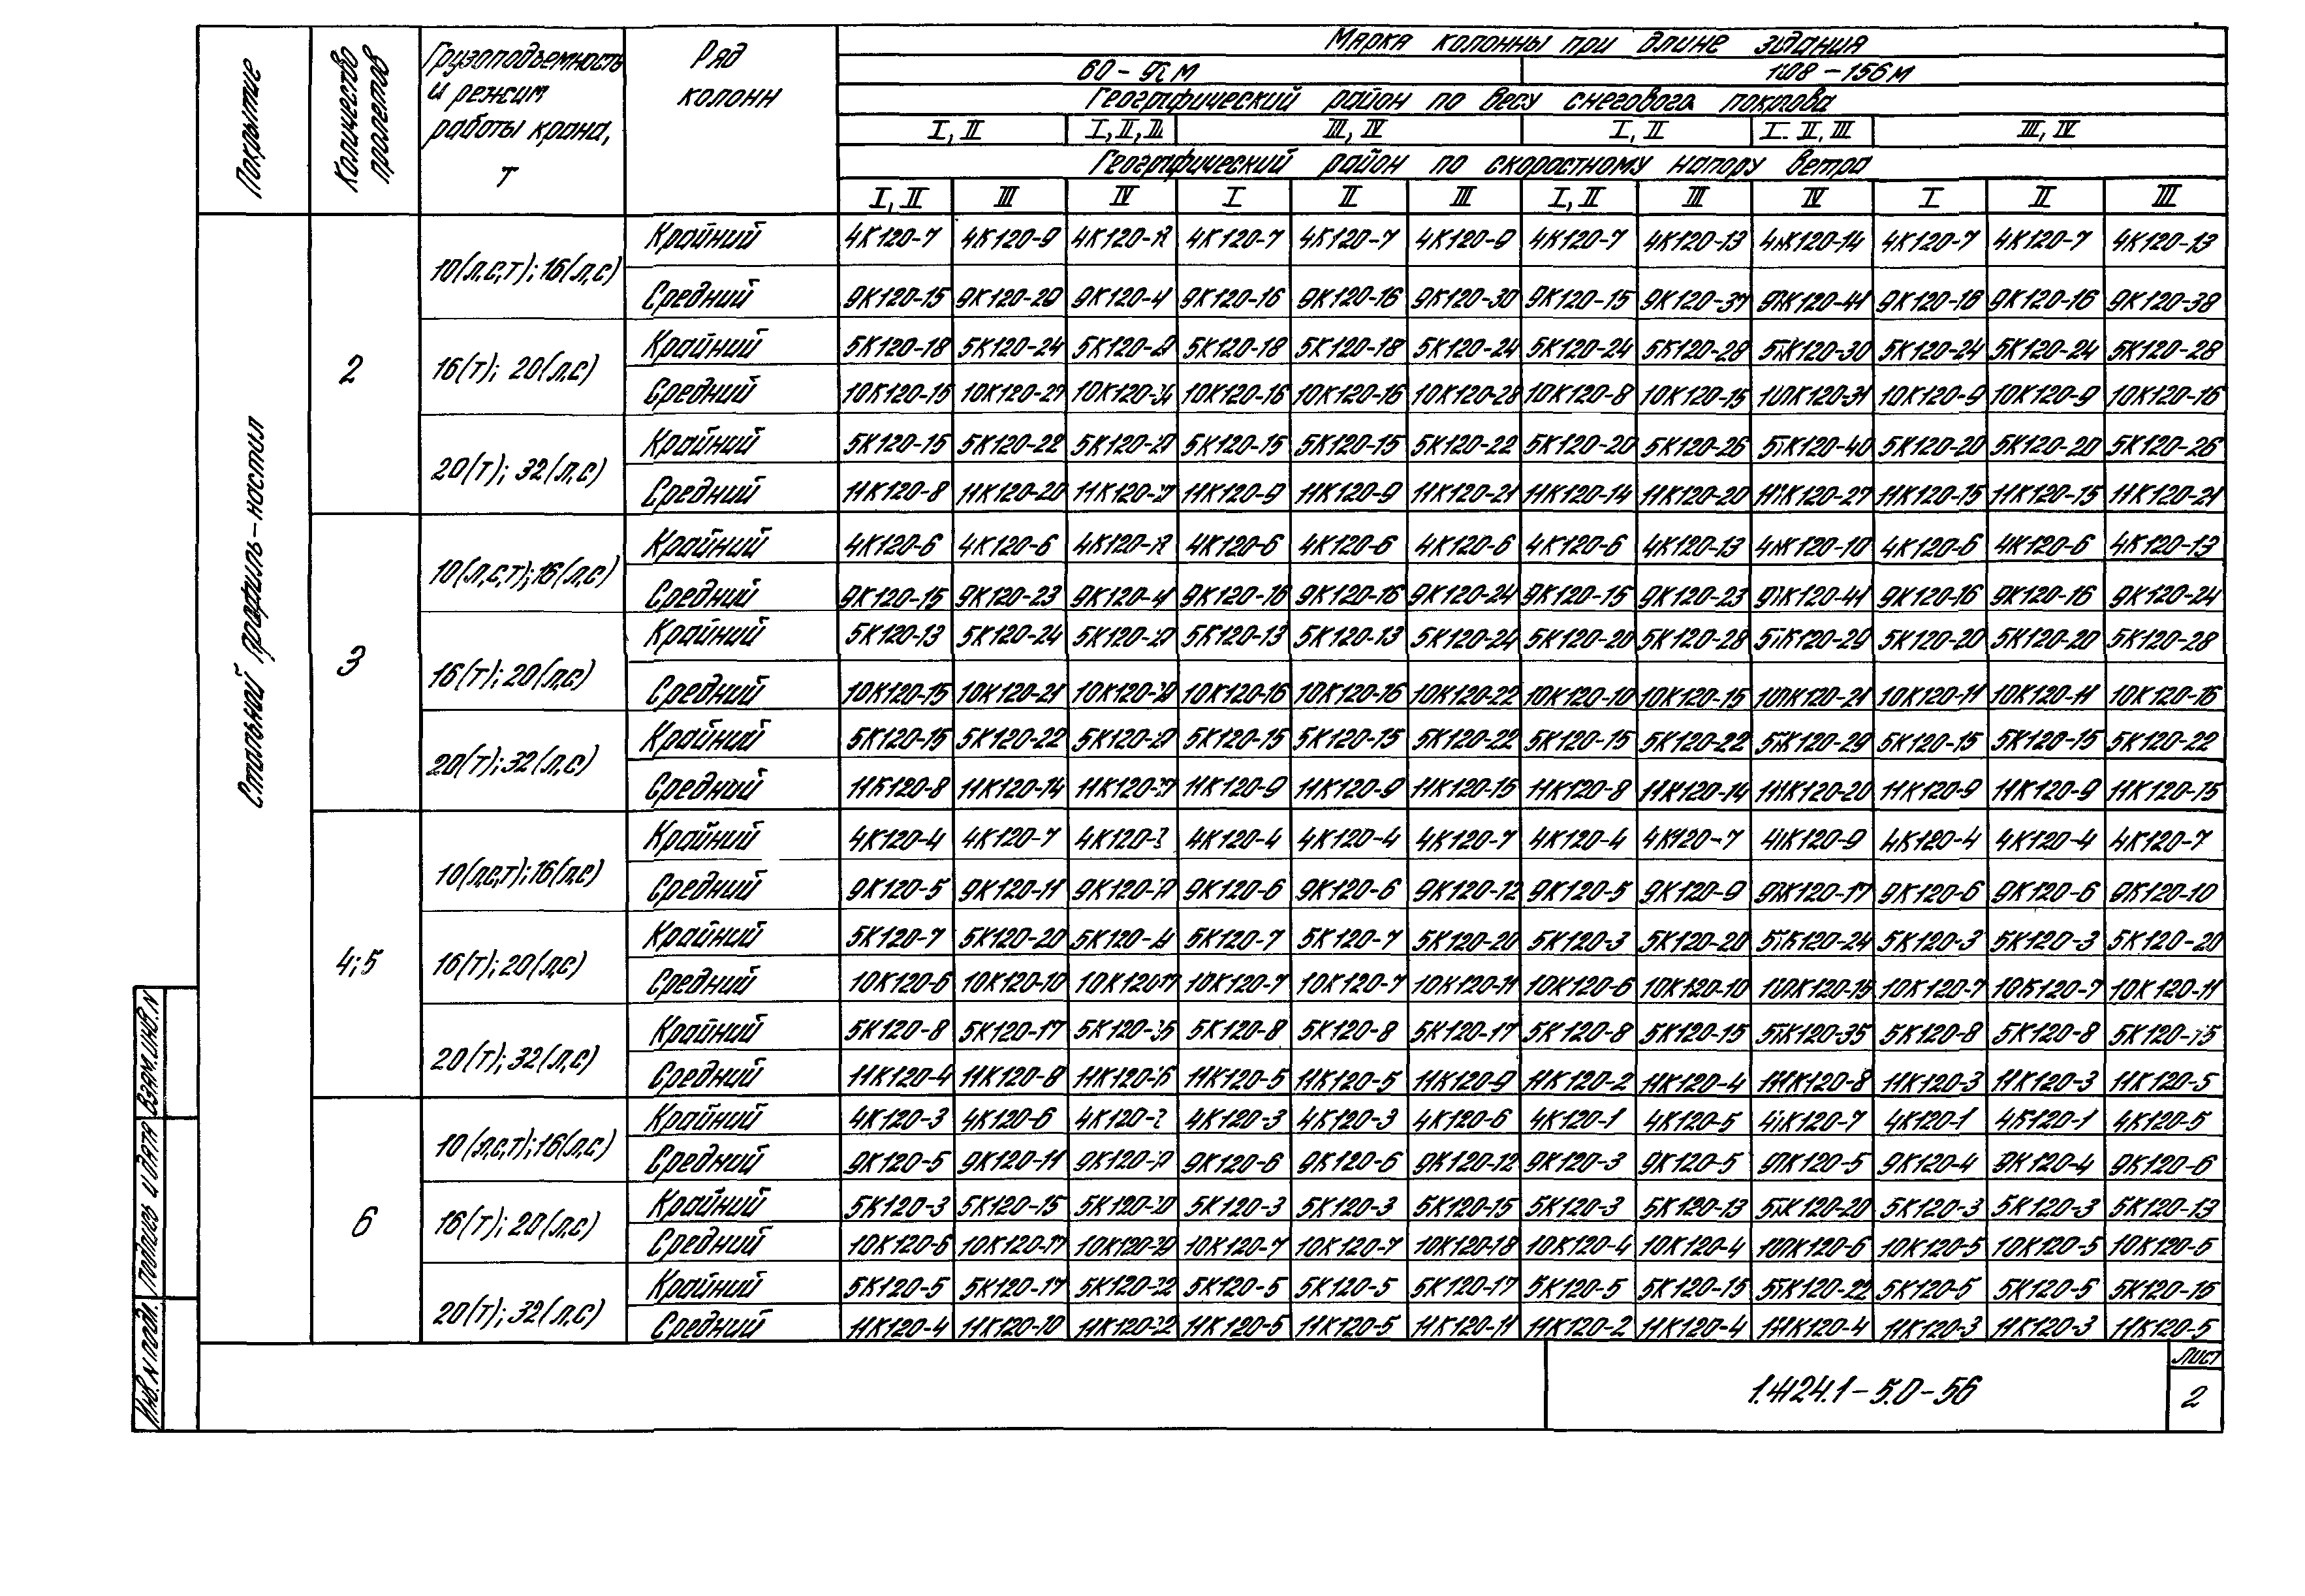 Покрытие
Количество пролетов
Грузоподъемность и режим работы крана, т
Ряд колонн
Марка колонны при длине здания
60 – м 108 – 156 м
Географический район по весу снегового покрова
I, II I, II, III III, IV I, II I. II, III III, IV
Географический район по скоростному напору ветра
I, II III IV I II III I, II III IV I II III
Стальной профиль-настил
2
10(л,с,т); 16(л,с)
Крайний 4К120-7 4К120-9 4К120- 4К120-7 4К120-7 4К120-9 4К120-7 4К120-13 4К120-14 4К120-7 4К120-7 4К120-13
Средний 9К120-15 9К120-29 9К120- 9К120-16 9К120-16 9К120-30 9К120-15 9К120-37 9К120-41 9К120-16 9К120-16 9К120-38
16(т); 20(л,с)
Крайний 5К120-18 5К120-24 5К120- 5К120-18 5К120-18 5К120-24 5К120-24 5К120-28 5К120-30 5К120-24 5К120-24 5К120-28
Средний 10К120-15 10К120-27 10К120- 10К120-16 10К120-16 10К120-28 10К120-8 10К120-15 10К120-31 10К120-9 10К120-9 10К120-16
20(т); 32(л,с)
Крайний 5К120-15 5К120-22 5К120- 5К120-15 5К120-15 5К120-22 5К120-20 5К120-26 5К120-40 5К120-20 5К120-20 5К120-26
Средний 11К120-8 11К120-20 11К120- 11К120-9 11К120-9 11К120-21 11К120-14 11К120-20 11К120-27 11К120-15 11К120-15 11К120-21
3
10(л,с,т); 16(л,с)
Крайний 4К120-6 4К120-6 4К120- 4К120-6 4К120-6 4К120-6 4К120-6 4К120-13 4К120-10 4К120-6 4К120-6 4К120-13
Средний 9К120-15 9К120-23 9К120- 9К120-16 9К120-16 9К120-24 9К120-15 9К120-23 9К120-41 9К120-16 9К120-16 9К120-24
16(т); 20(л,с)
Крайний 5К120-13 5К120-24 5К120- 5К120-13 5К120-13 5К120-24 5К120-20 5К120-28 5К120-29 5К120-20 5К120-20 5К120-28
Средний 10К120-15 10К120-21 10К120- 10К120-16 10К120-16 10К120-22 10К120-10 10К120-15 10К120-21 10К120-11 10К120-11 10К120-16
20(т); 32(л,с)
Крайний 5К120-15 5К120-22 5К120- 5К120-15 5К120-15 5К120-22 5К120-15 5К120-22 5К120-29 5К120-15 5К120-15 5К120-22
Средний 11К120-8 11К120-14 11К120- 11К120-9 11К120-9 11К120-15 11К120-8 11К120-14 11К120-20 11К120-9 11К120-9 11К120-15
4; 5
10(л,с,т); 16(л,с)
Крайний 4К120-4 4К120-7 4К120- 4К120-4 4К120-4 4К120-7 4К120-4 4К120-7 4К120-9 4К120-4 4К120-4 4К120-7
Средний 9К120-5 9К120-11 9К120- 9К120-6 9К120-6 9К120-12 9К120-5 9К120-9 9К120-17 9К120-6 9К120-6 9К120-10
16(т); 20(л,с)
Крайний 5К120-7 5К120-20 5К120- 5К120-7 5К120-7 5К120-20 5К120-3 5К120-20 5К120-24 5К120-3 5К120-3 5К120-20
Средний 10К120-6 10К120-10 10К120- 10К120-7 10К120-7 10К120-11 10К120-6 10К120-10 10К120-15 10К120-7 10К120-7 10К120-11
20(т); 32(л,с)
Крайний 5К120-8 5К120-17 5К120- 5К120-8 5К120-8 5К120-17 5К120-8 5К120-15 5К120-35 5К120-8 5К120-8 5К120-15
Средний 11К120-4 11К120-8 11К120- 11К120-5 11К120-5 11К120-9 11К120-2 11К120-4 11К120-8 11К120-3 11К120-3 11К120-5
6
10(л,с,т); 16(л,с)
Крайний 4К120-3 4К120-6 4К120- 4К120-3 4К120-3 4К120-6 4К120-1 4К120-5 4К120-7 4К120-1 4К120-1 4К120-5
Средний 9К120-5 9К120-11 9К120- 9К120-6 9К120-6 9К120-12 9К120-3 9К120-5 9К120-5 9К120-4 9К120-4 9К120-6
16(т); 20(л,с)
Крайний 5К120-3 5К120-15 5К120- 5К120-3 5К120-3 5К120-15 5К120-3 5К120-13 5К120-20 5К120-3 5К120-3 5К120-13
Средний 10К120-6 10К120-17 10К120- 10К120-7 10К120-7 10К120-18 10К120-4 10К120-4 10К120-6 10К120-5 10К120-5 10К120-5
20(т); 32(л,с)
Крайний 5К120-5 5К120-17 5К120- 5К120-5 5К120-5 5К120-17 5К120-5 5К120-15 5К120-22 5К120-5 5К120-5 5К120-15
Средний 11К120-4 11К120-10 11К120- 11К120-5 11К120-5 11К120-11 11К120-2 11К120-4 11К120-4 11К120-3 11К120-3 11К120-5
Инв. N подл. Подпись и дата Взам. инв. N
1.424.1 – 5.0 – 56
Лист
2